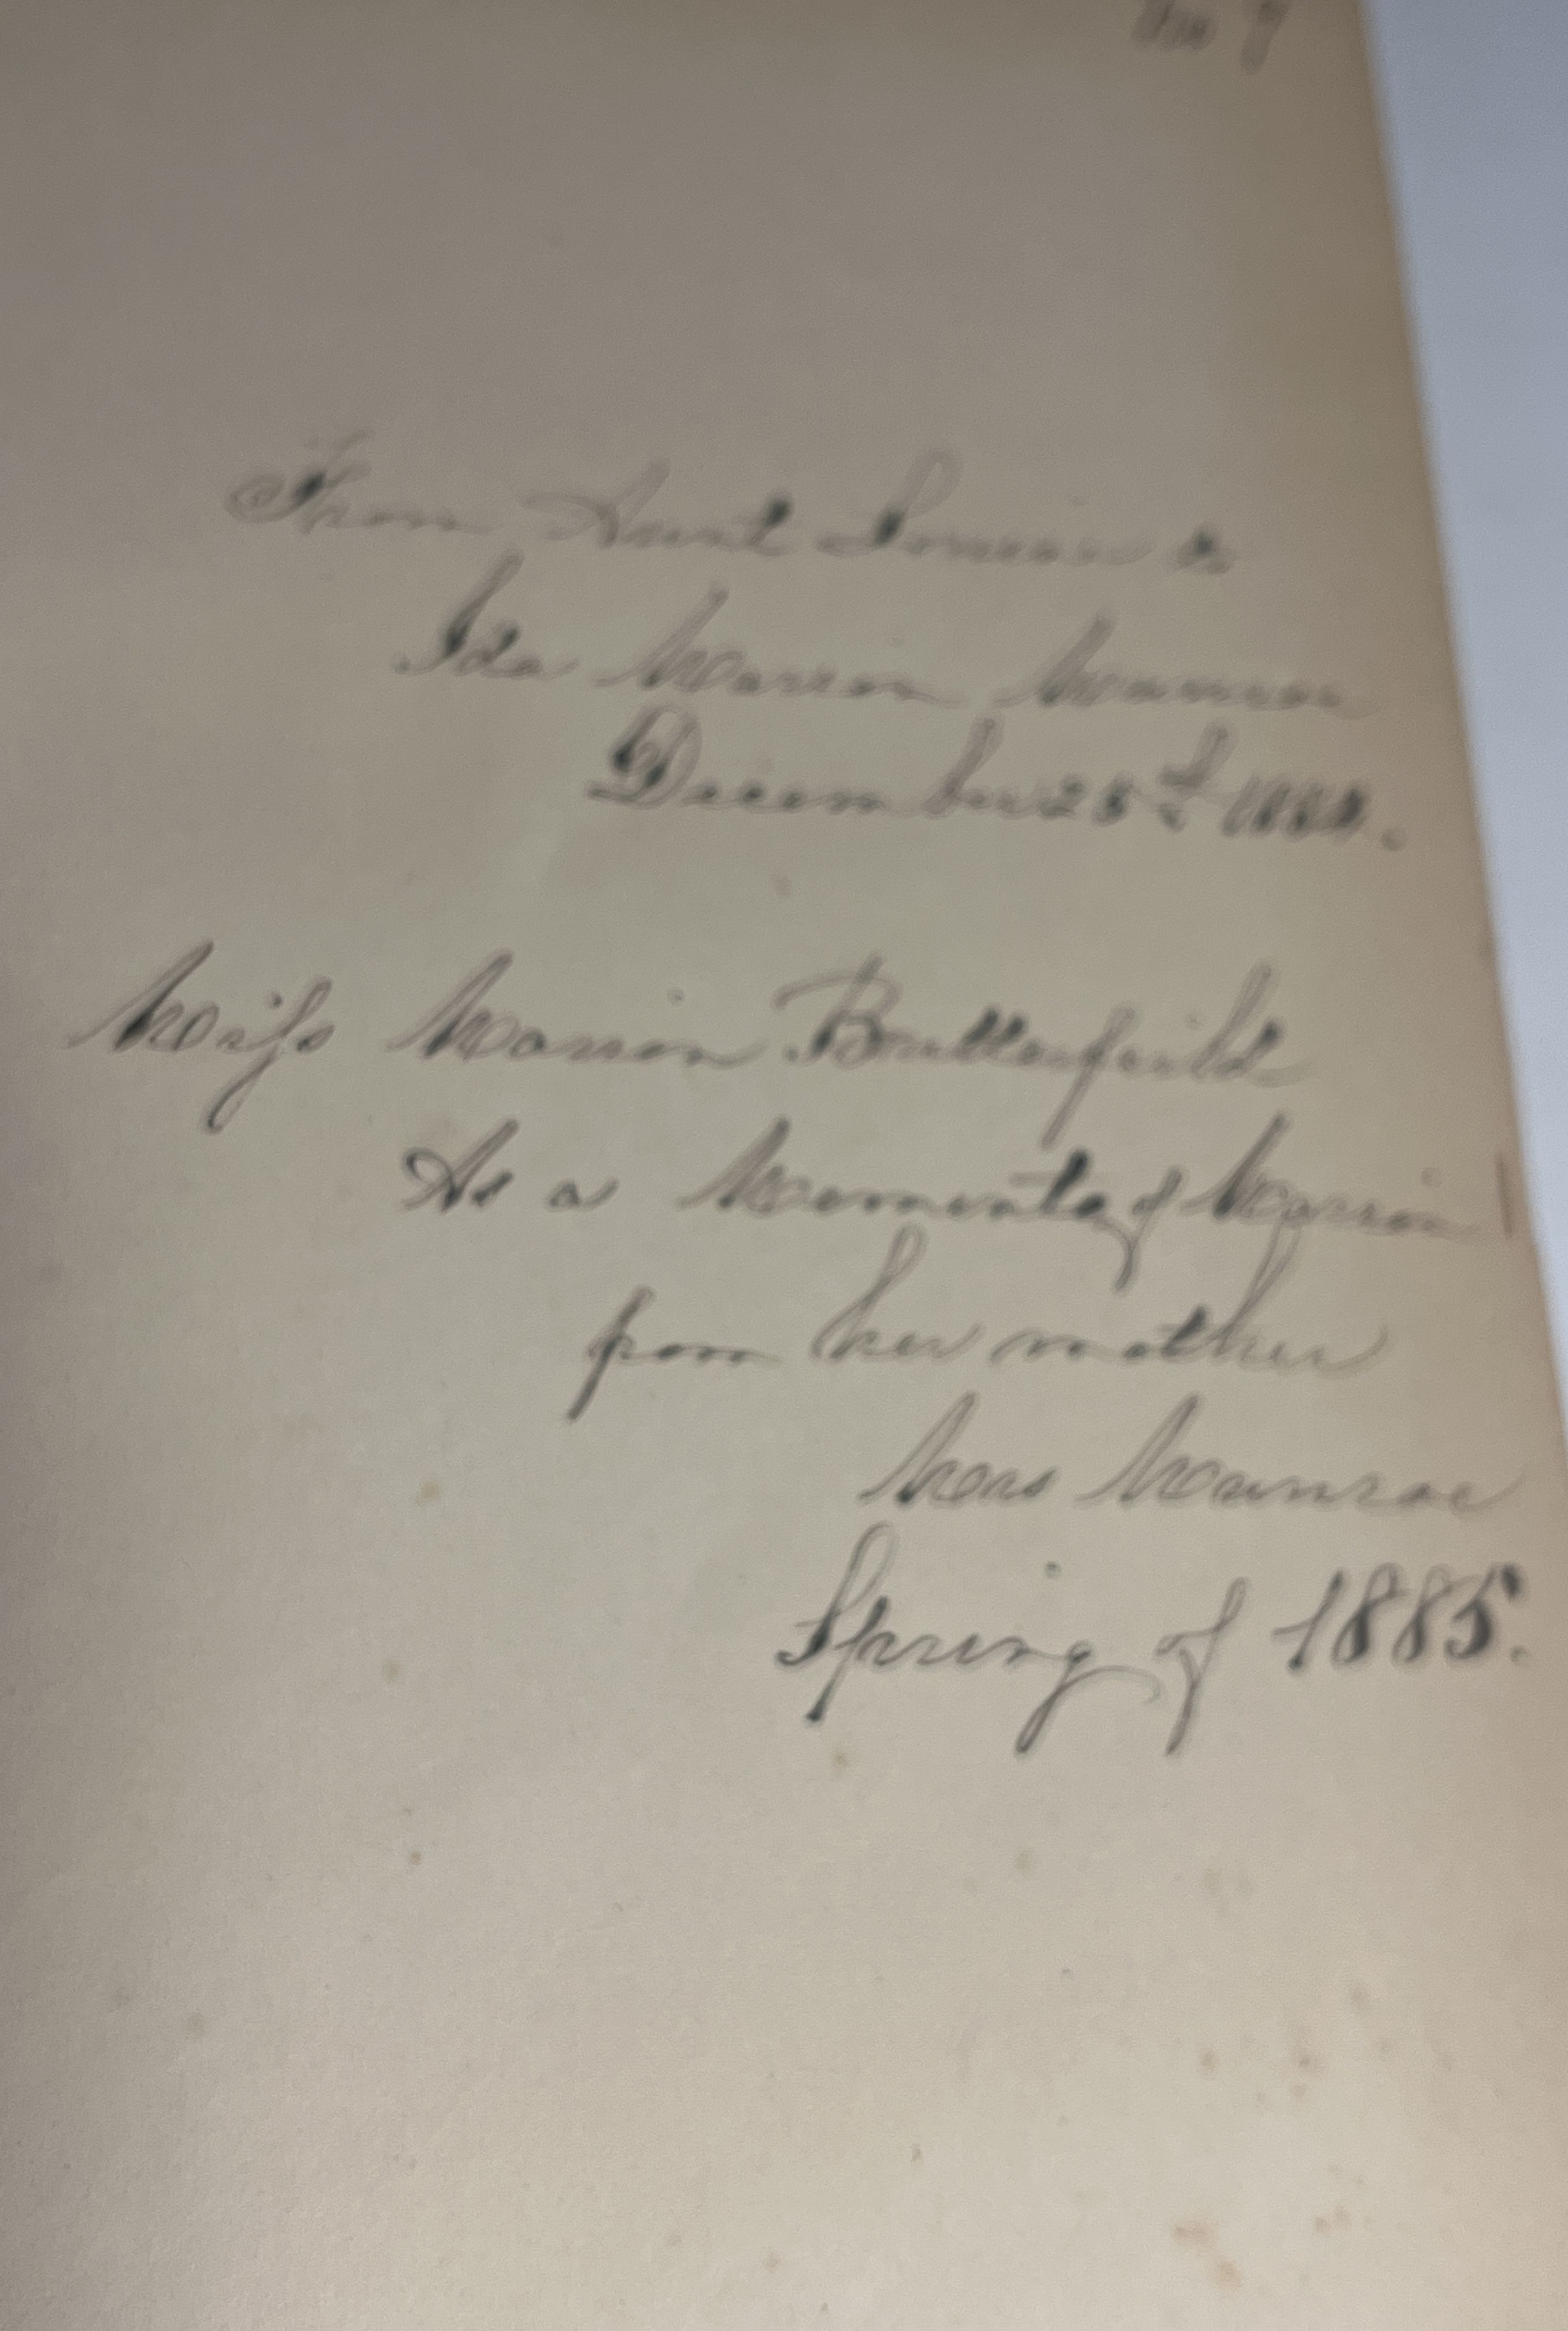 From Aunt Louisa to
Ida Marion Munroe
December 25th 1884.
Miss Marion Butterfield
As a Memento of Marion
from her mother
Mrs Munroe
Spring of 1885.